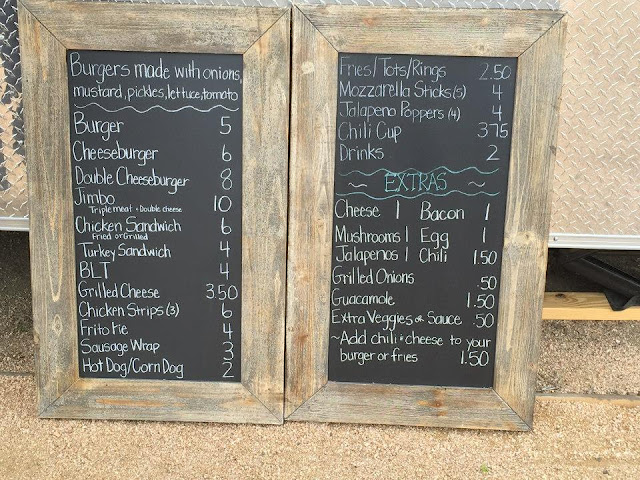 Burgers made with onions,
mustard, pickles, lettuce, tomato
Burger 5
Cheeseburger 6
Double Cheeseburger 8
Jimbo 10
Triple meat + Double cheese
Chicken Sandwich 6
Fried or Grilled
Turkey Sandwich 4
BLT 4
Grilled Cheese 3.50
Chicken Strips (3) 6
Frito Pie 4
Sausage Wrap 3
Hot Dog/Corn Dog 2
Fries/Tots/Rings 2.50
Mozzarella Sticks (5) 4
Jalapeno Poppers (4) 4
Chili Cup 3.75
Drinks 2
~ EXTRAS ~
Cheese 1 Bacon 1
Mushrooms 1 Egg 1
Jalapenos 1 Chili 1.50
Grilled Onions .50
Guacamole 1.50
Extra Veggies or Sauce .50
~Add chili + cheese to your
burger or fries 1.50